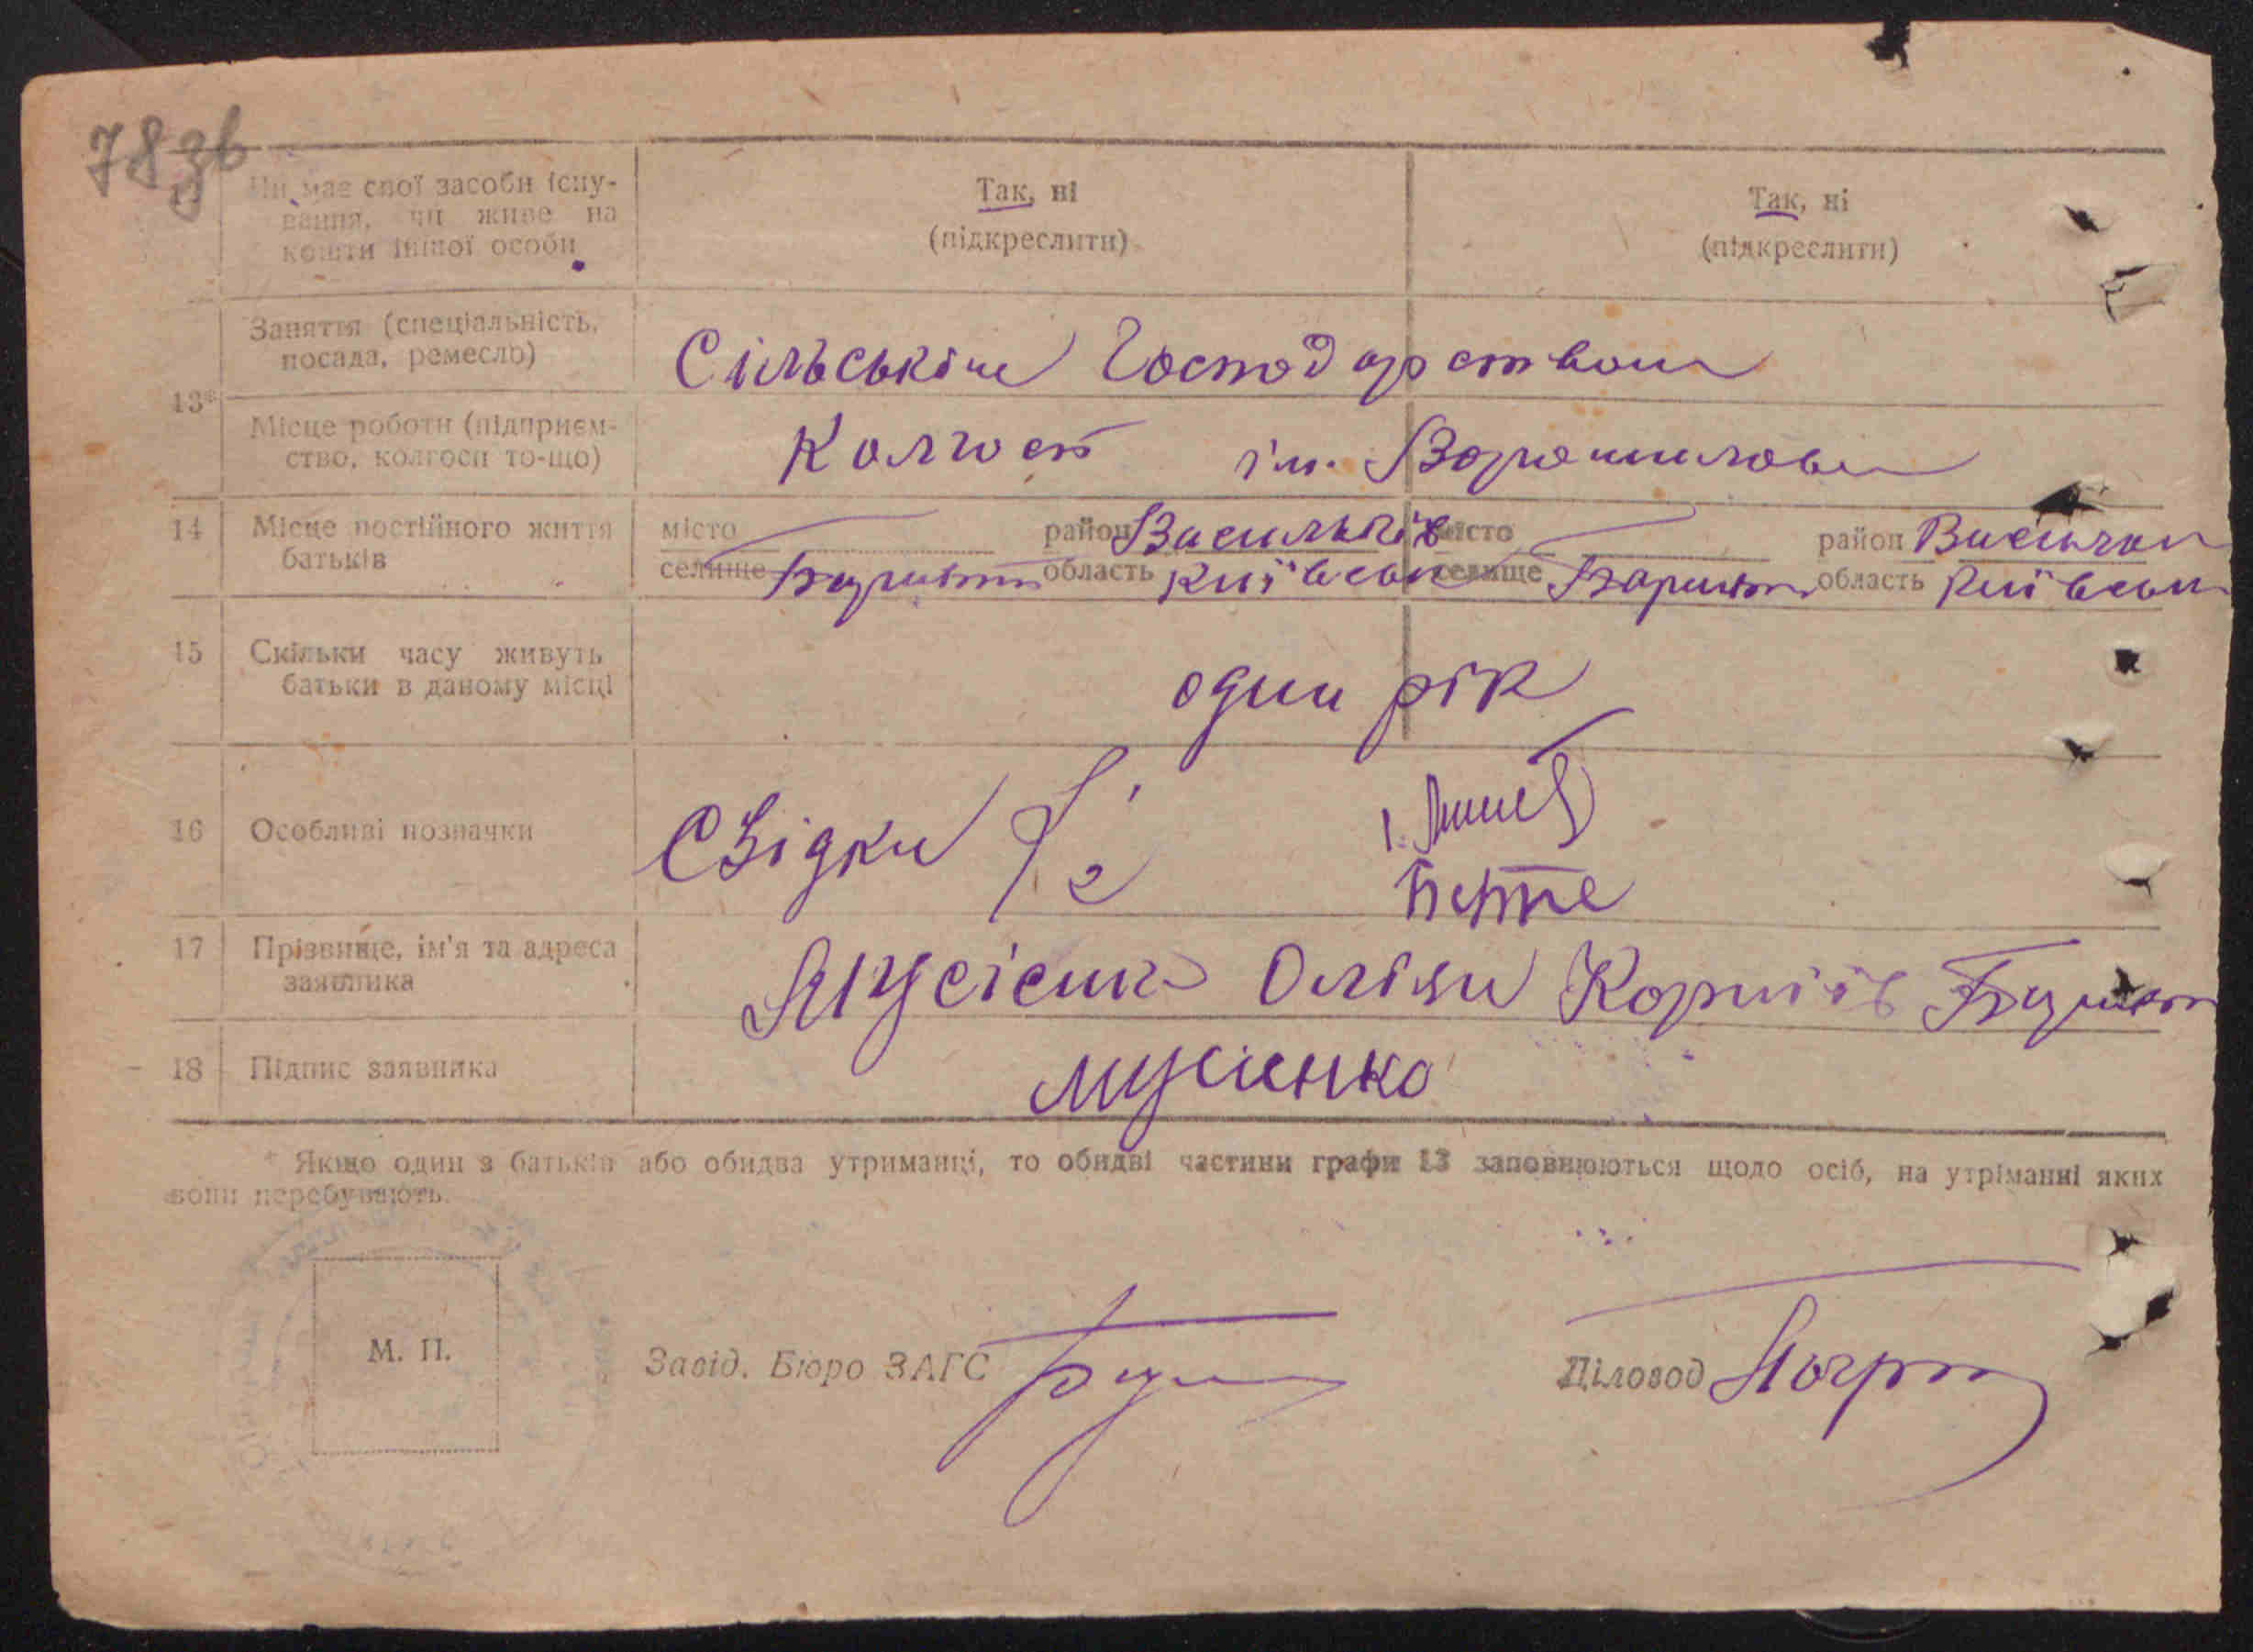 783б
Чи має свої засоби існу-
вання, чи живе на
кошти іншої особи
Так, ні
(підкреслити)
Так, ні
(підкреслити)
13*
Заняття (спеціальність,
посада, ремесло)
Сільським Господарством
Місце роботи (підприєм-
ство, колгосп то-що)
Колгосп ім. Ворошилова
14
Місце постійного життя
батьків
місто
селище
район Васильків
область Київськ
місто
селище
район Васильків
область Київськ
15
Скільки часу живуть
батьки в даному місці
один рік
16
Особливі позначки
Свідки 1
2
17
Прізвище, ім'я та адреса
заявника
Мусієнко Оліян Корніїв
18
Підпис заявника
мусиенко
* Якщо один з батьків або обидва утриманці, то обидві частини графи 13 заповнюються щодо осіб, на утріманні яких
вони перебувають.
М. П.
Завід. Бюро ЗАГС
Діловод